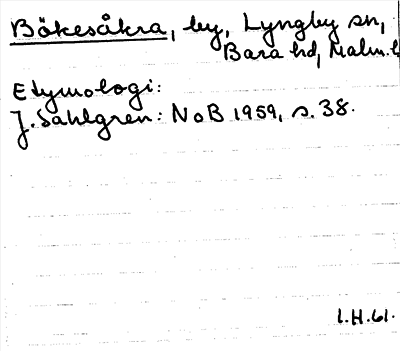 Bökesåkra, by, Lyngby sn,
Bara hd, Malm. l
Etymologi:
J. Sahlgren: NoB 1959, s. 38.
I.H.61.